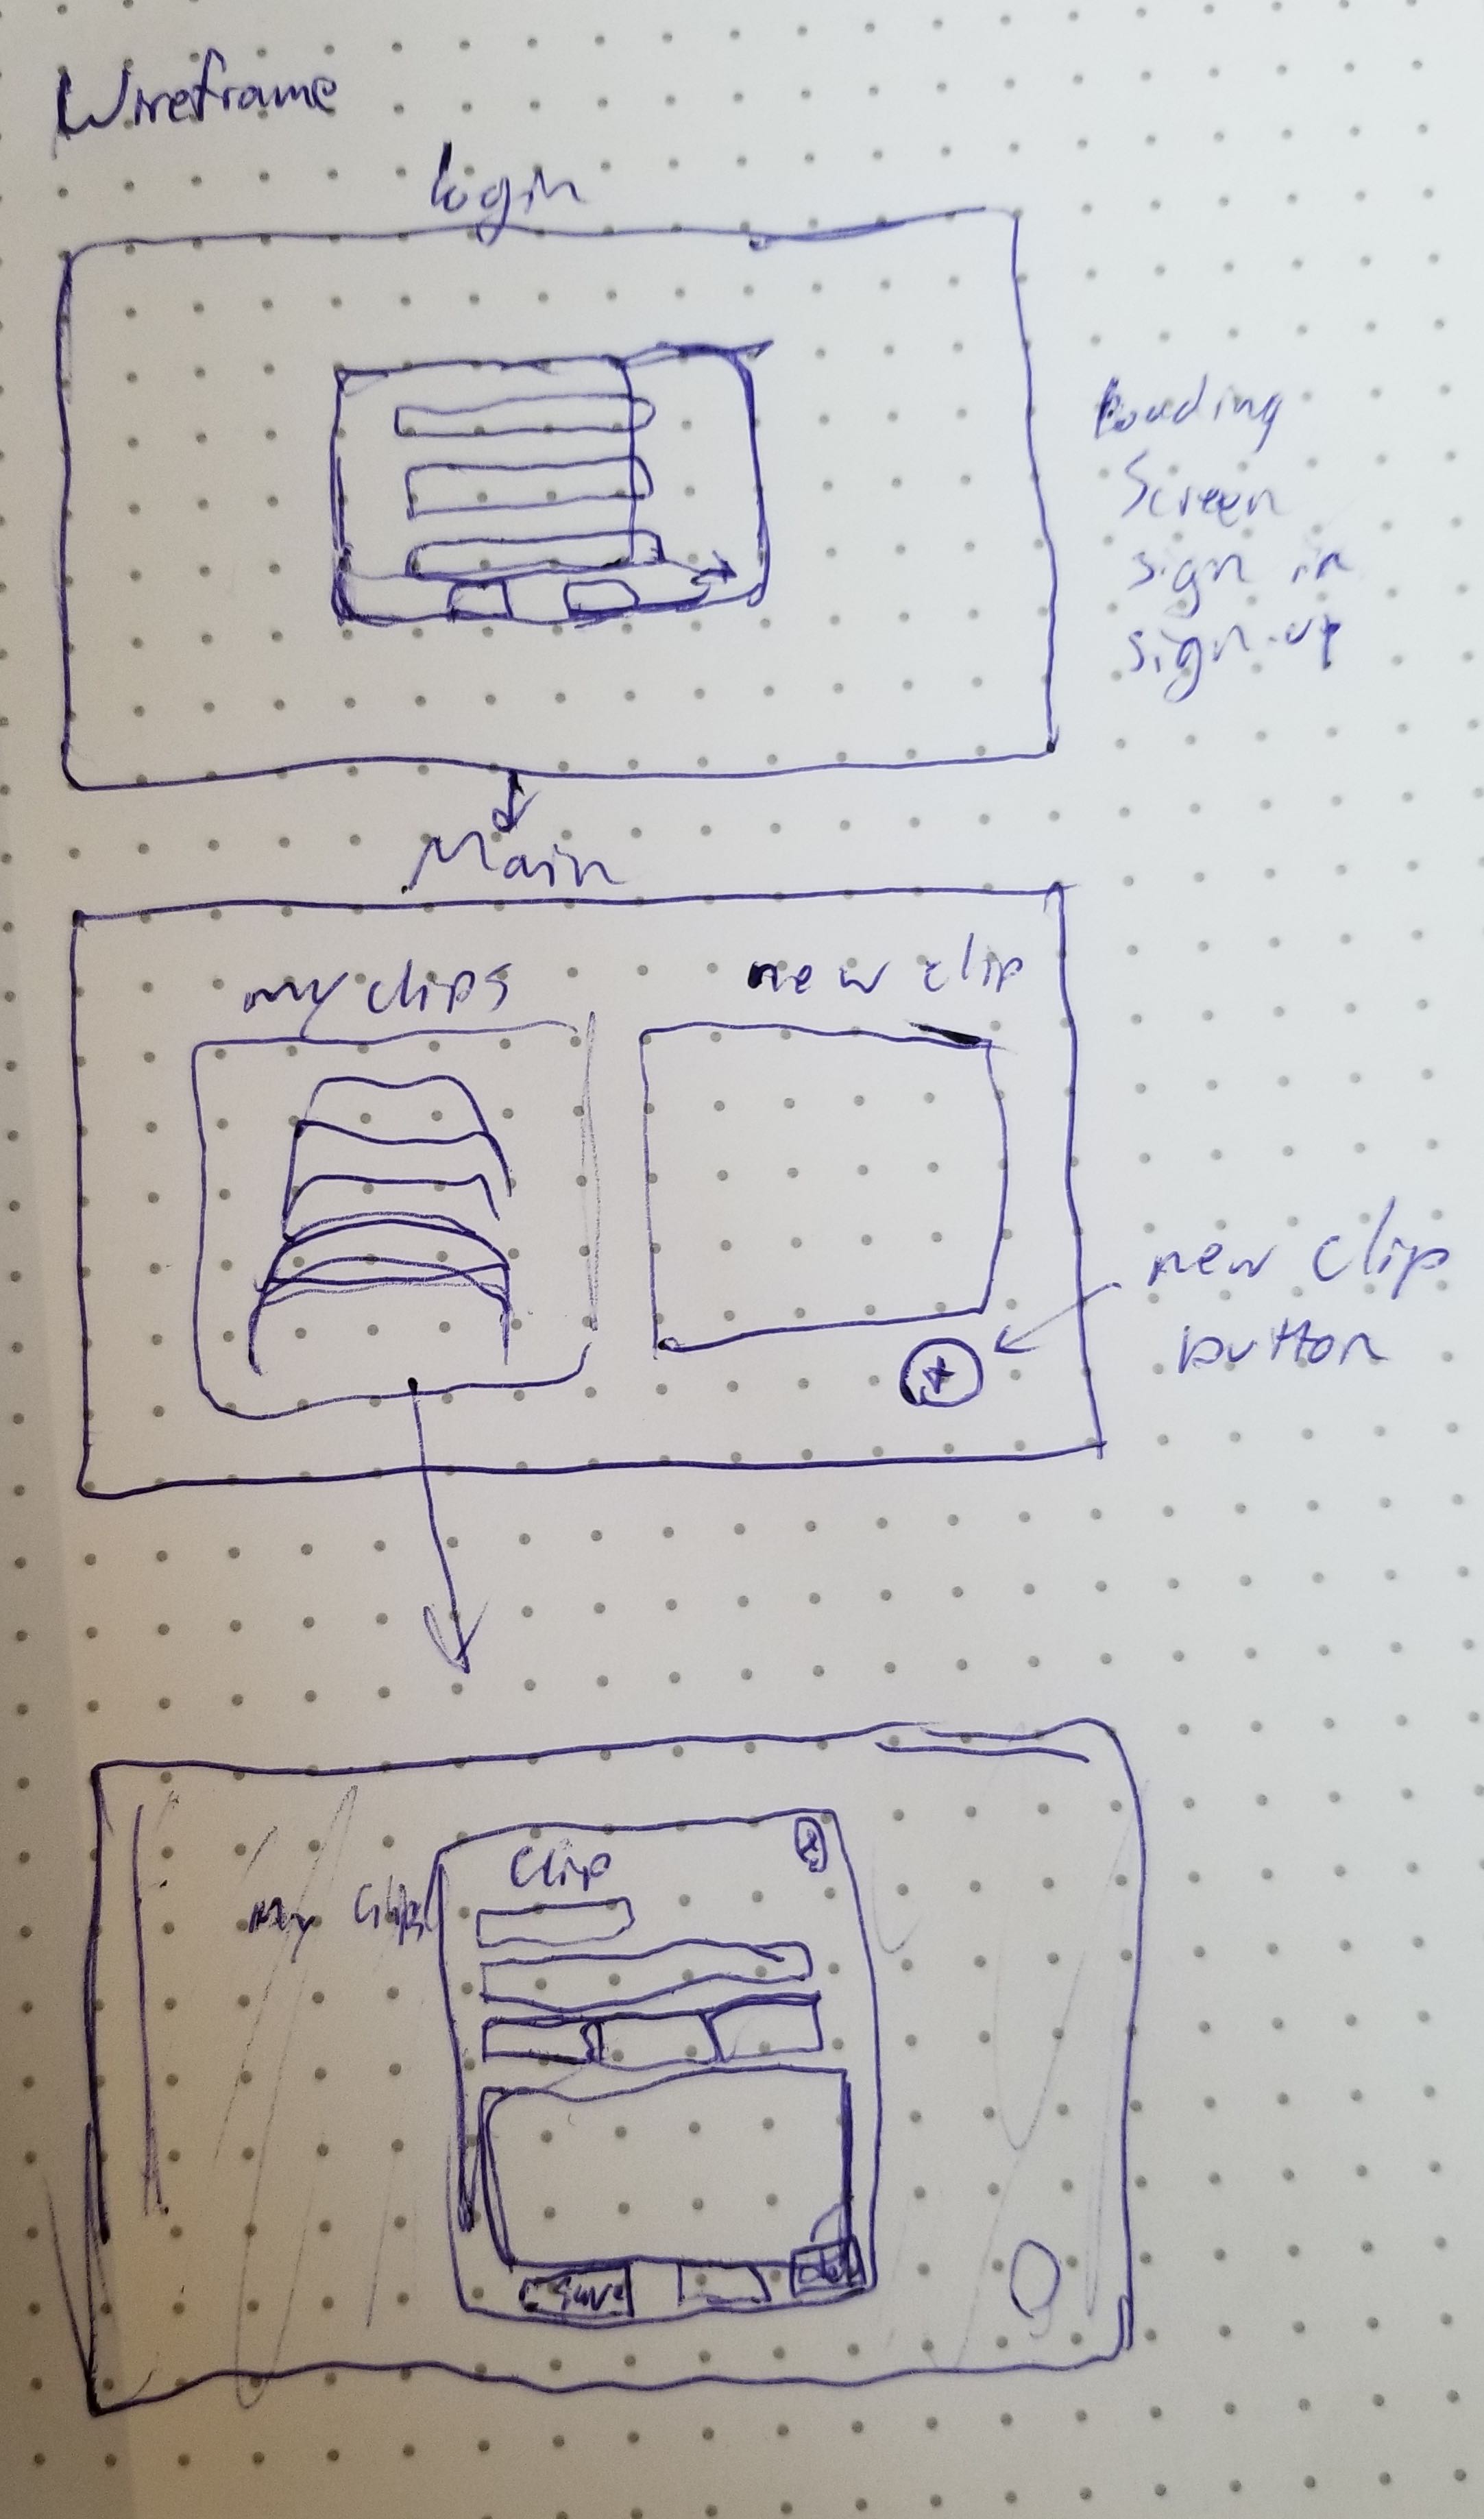 Wireframe
login
Loading
Screen
sign in
sign-up
Main
my clips
new clip
+
new clip
button
Clip
my Clips
Save